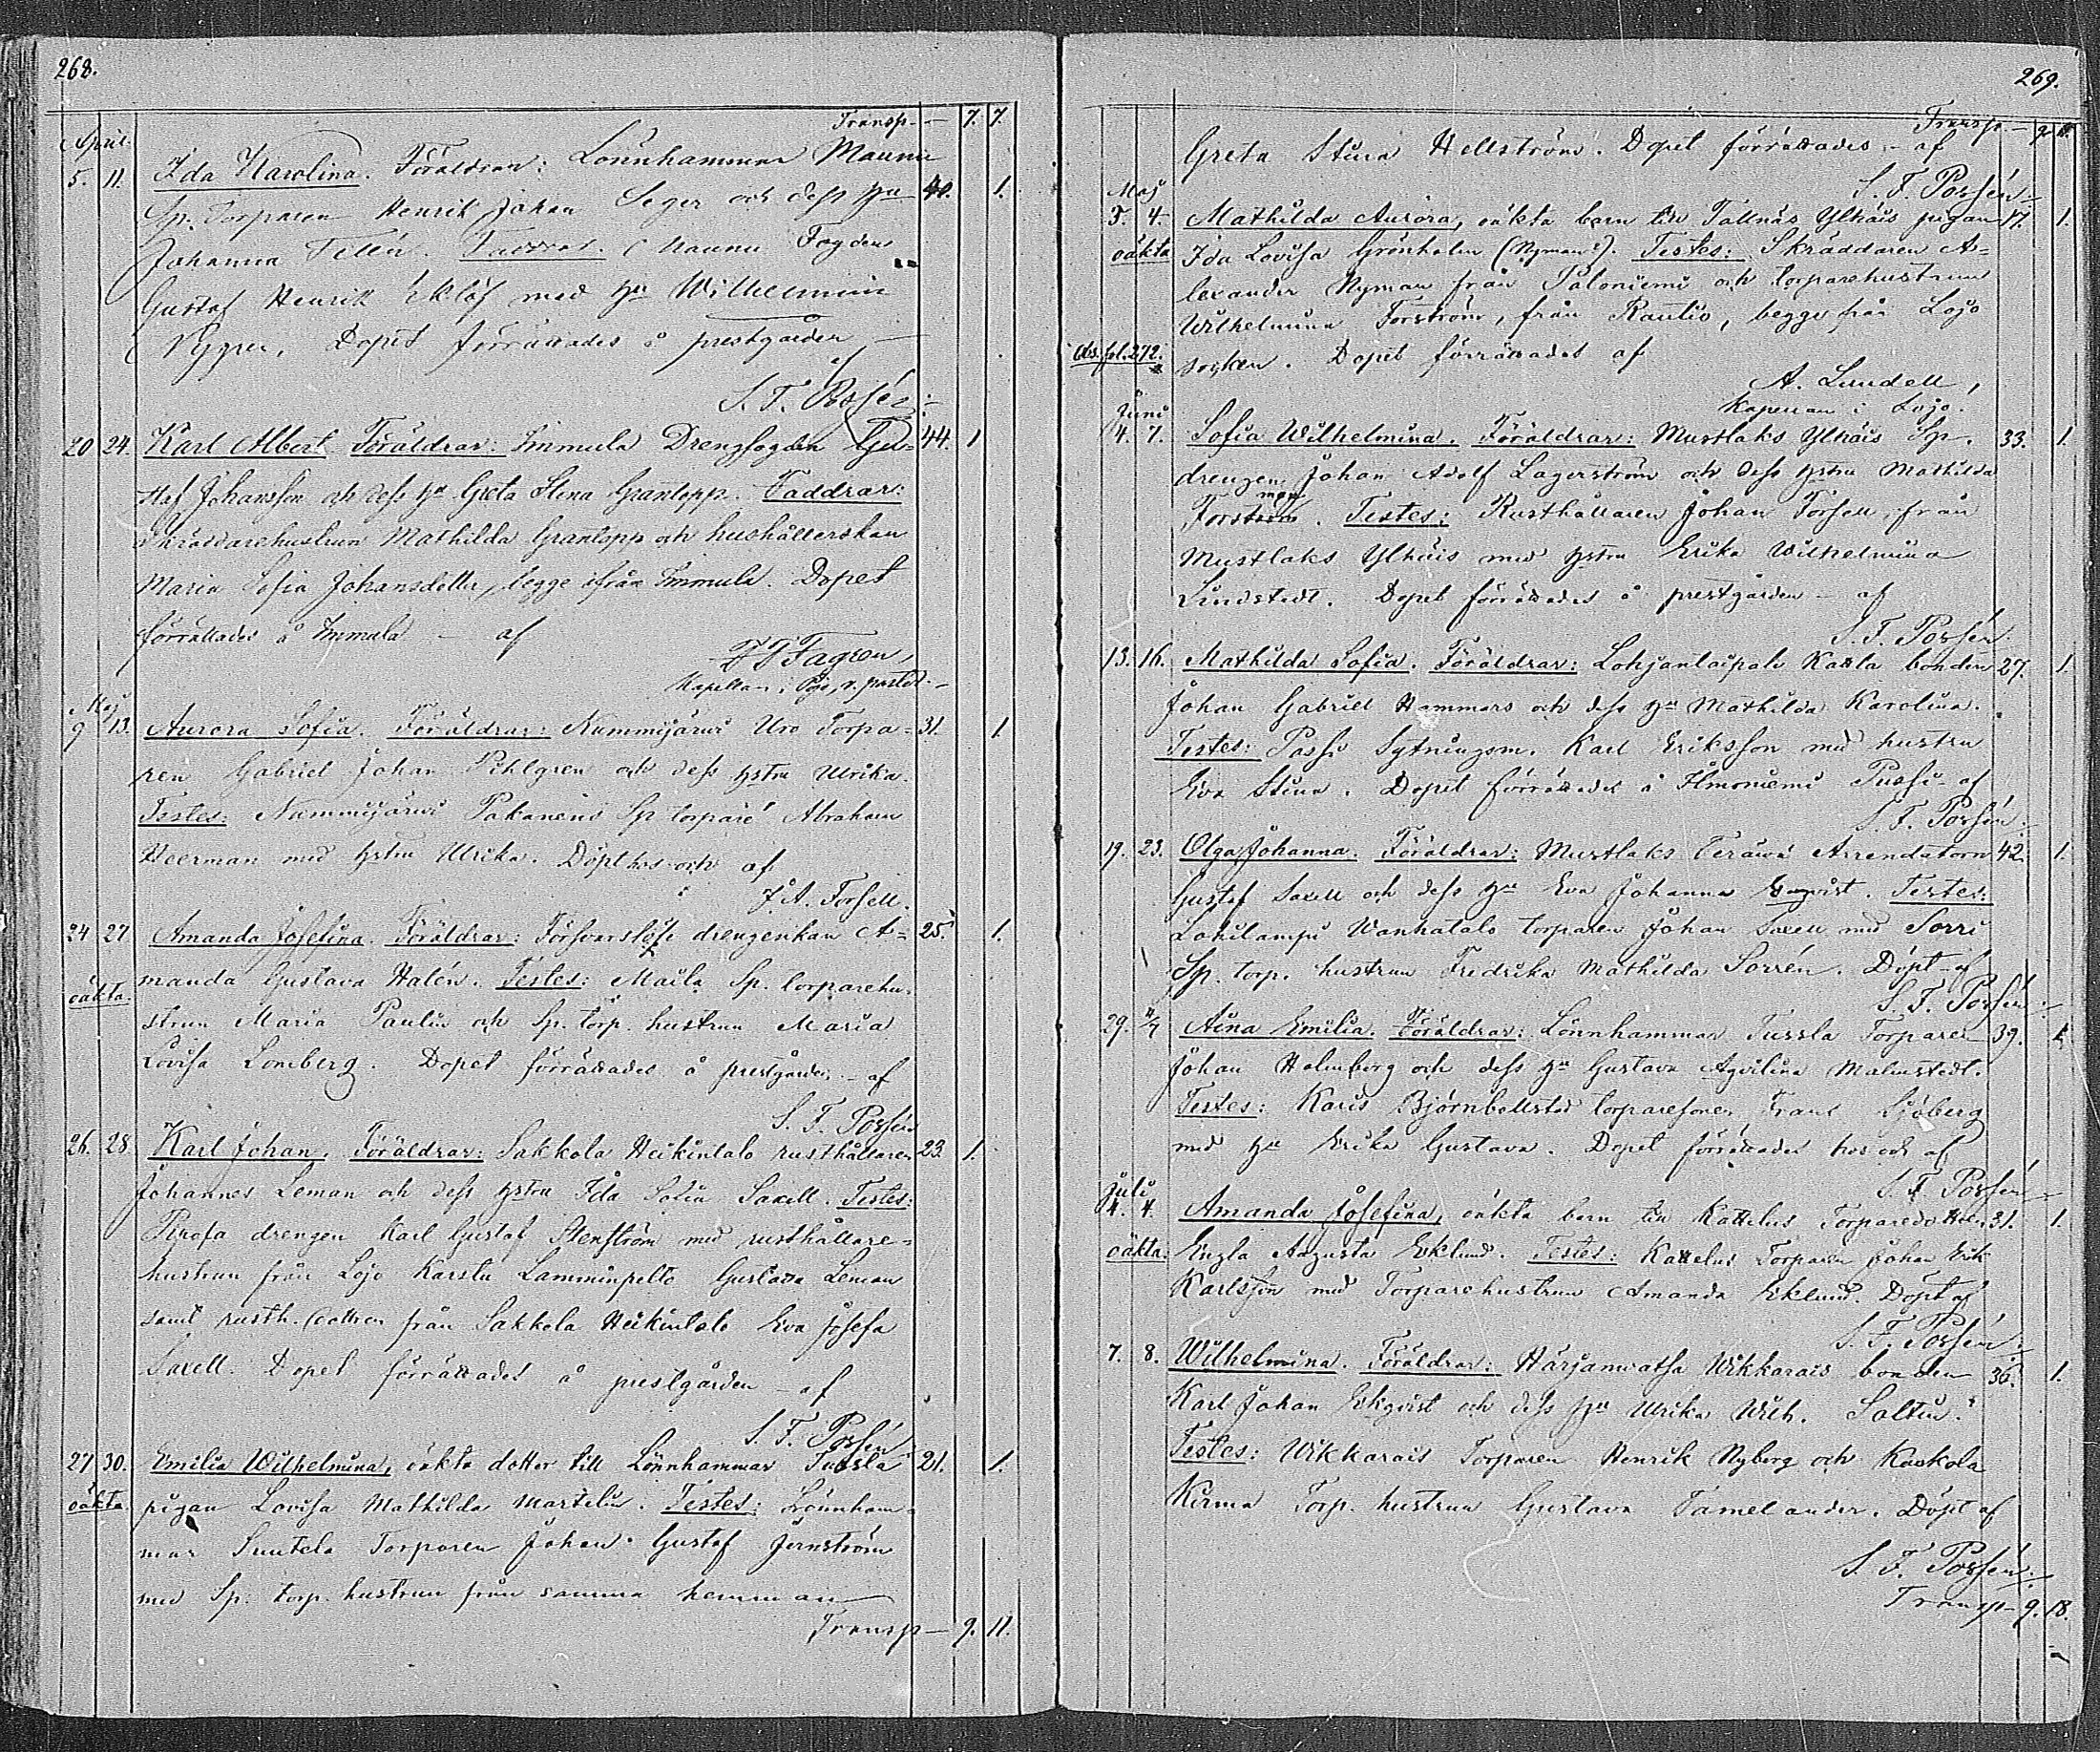 268.
Transp. — 7. 7.
April.
5. 11. Ida Karolina. Föräldrar: Lönnhammar Maunu 40. 1.
Sp. Torparen Henrik Johan Seger och dess hu
Johanna Tellén. Faddrar: Maunu Fogden
Gustaf Henrik Eklöf med hu Wilhelmina
Nygren. Dopet förrättades å prestgården —
af
S. F. Possén.
20 24. Karl Albert. Föräldrar: Immula Drengfogden Gu= 44. 1
staf Johansson och dess hu Greta Stina Grantopp. Faddrar:
Skräddarehustrun Mathilda Grantopp och hushållerskan
Maria Sofia Johansdotter, begge ifrån Immula. Dopet
förrättades å Immula — af
Fagren,
Kapellan i
Maj
9 13. Aurora Sofia. Föräldrar: Nummijärvi Uro Torpa= 31. 1.
ren Gabriel Johan Pihlgren och dess hstru Ulrika.
Testes: Nummijärvi Pakanens Sp torpare Abraham
Heerman med hstru Ulrika. Döpt hos och af
J. A. Forsell.
24 27 Amanda Josefina. Föräldrar: Försvarslösa drengenkan A= 25. 1.
oäkta. manda Gustava Halén. Testes: Maila Sp. torparehu=
strun Maria Paulin och Sp. torp. hustrun Maria
Lovisa Lomberg. Dopet förrättades å prestgården — af
S. F. Possén
26. 28. Karl Johan. Föräldrar: Sakkola Heikintalo rusthållaren 23. 1.
Johannes Leman och dess hstru Ida Sofia Saxell. Testes:
drengen Karl Gustaf Stenström med rusthållare=
hustrun från Lojo Karstu Lamminpelto Gustava Leman
samt rusth. dottren från Sakkola Heikintalo Eva Josefa
Saxell. Dopet förrättades å prestgården — af
S. F. Possén
27 30. Emilia Wilhelmina, oäkta dotter till Lönnhammar Tussla 21. 1.
oäkta. pigan Lovisa Mathilda Martelin. Testes: Lönnham=
mar Suutela Torparen Johan Gustaf Jernström
med Sp. torp. hustrun från samma hemman
Transp — 9. 11.
269.
Transp. — 9 11.
Greta Stina Hellström. Dopet förrättades — af
S. F. Possén.
Maj
3. 4. Mathilda Aurora, oäkta barn till Tallnäs Ylhäis pigan 17. 1.
oäkta Ida Lovisa Grönholm (Nyman?). Testes: Skräddaren A=
lexander Nyman från Paloniemi och torparehustrun
Wilhelmina Forström, från Rautio, begge från Lojo
Obs. fol. 272. socken. Dopet förrättades af
A. Lundell,
Kapellan i Lojo.
Juni
4. 7. Sofia Wilhelmina. Föräldrar: Mustlaks Ylhäis Sp. 33. 1.
drengen Johan Adolf Lagerström och dess hstru Mathilda
man
Forström. Testes: Rusthållaren Johan Forsell, från
Mustlaks Ylhäis med hstru Erika Wilhelmina
Lindstedt. Dopet förrättades å prestgården — af
S. F. Possén.
13. 16. Mathilda Sofia. Föräldrar: Lohjantaipale Kaxla bonden 27. 1.
Johan Gabriel Hammars och dess hu Mathilda Karolina.
Testes: Passi Sytningsm. Karl Eriksson med hustru
Eva Stina. Dopet förrättades å Ilmoniemi Pussi — af
S. F. Possén.
19. 23. Olga Johanna. Föräldrar: Mustlaks Teräwä Arrendatorn 42. 1.
Gustaf Saxell och dess hu Eva Johanna Enqvist. Testes:
Lohilampi Wanhatalo torparen Johan Saxell med Sorri
Sp. torp. hustrun Fredrika Mathilda Sorrén. Döpt — af
S. F. Possén.
29. 4/7 Aina Emilia. Föräldrar: Lönnhammar Tussla Torparen 39. 1.
Johan Holmberg och dess hu Gustava Agvilina Malmstedt.
Testes: Karis Björnbollstad torparesonen Frans Sjöberg
med hu Erika Gustava. Dopet förrättades hos och af
S. F. Possén
Juli
4. 4. Amanda Josefina, oäkta barn till Kattelus Torparedottren 31. 1.
oäkta. Engla Augusta Eklund. Testes: Kattelus Torparen Johan Erik
Karlsson med Torparehustrun Amanda Eklund. Döpt af
S. F. Possén.
7. 8. Wilhelmina. Föräldrar: Härjanwatsa Wikkarais bonden 36. 1.
Karl Johan Ekqvist och dess hu Ulrika Wilh. Saltin.
Testes: Wikkarais Torparen Henrik Nyberg och Koskola
Kirma Torp. hustrun Gustava Tamelander. Döpt af
S. F. Possén.
Transp — 9. 18.